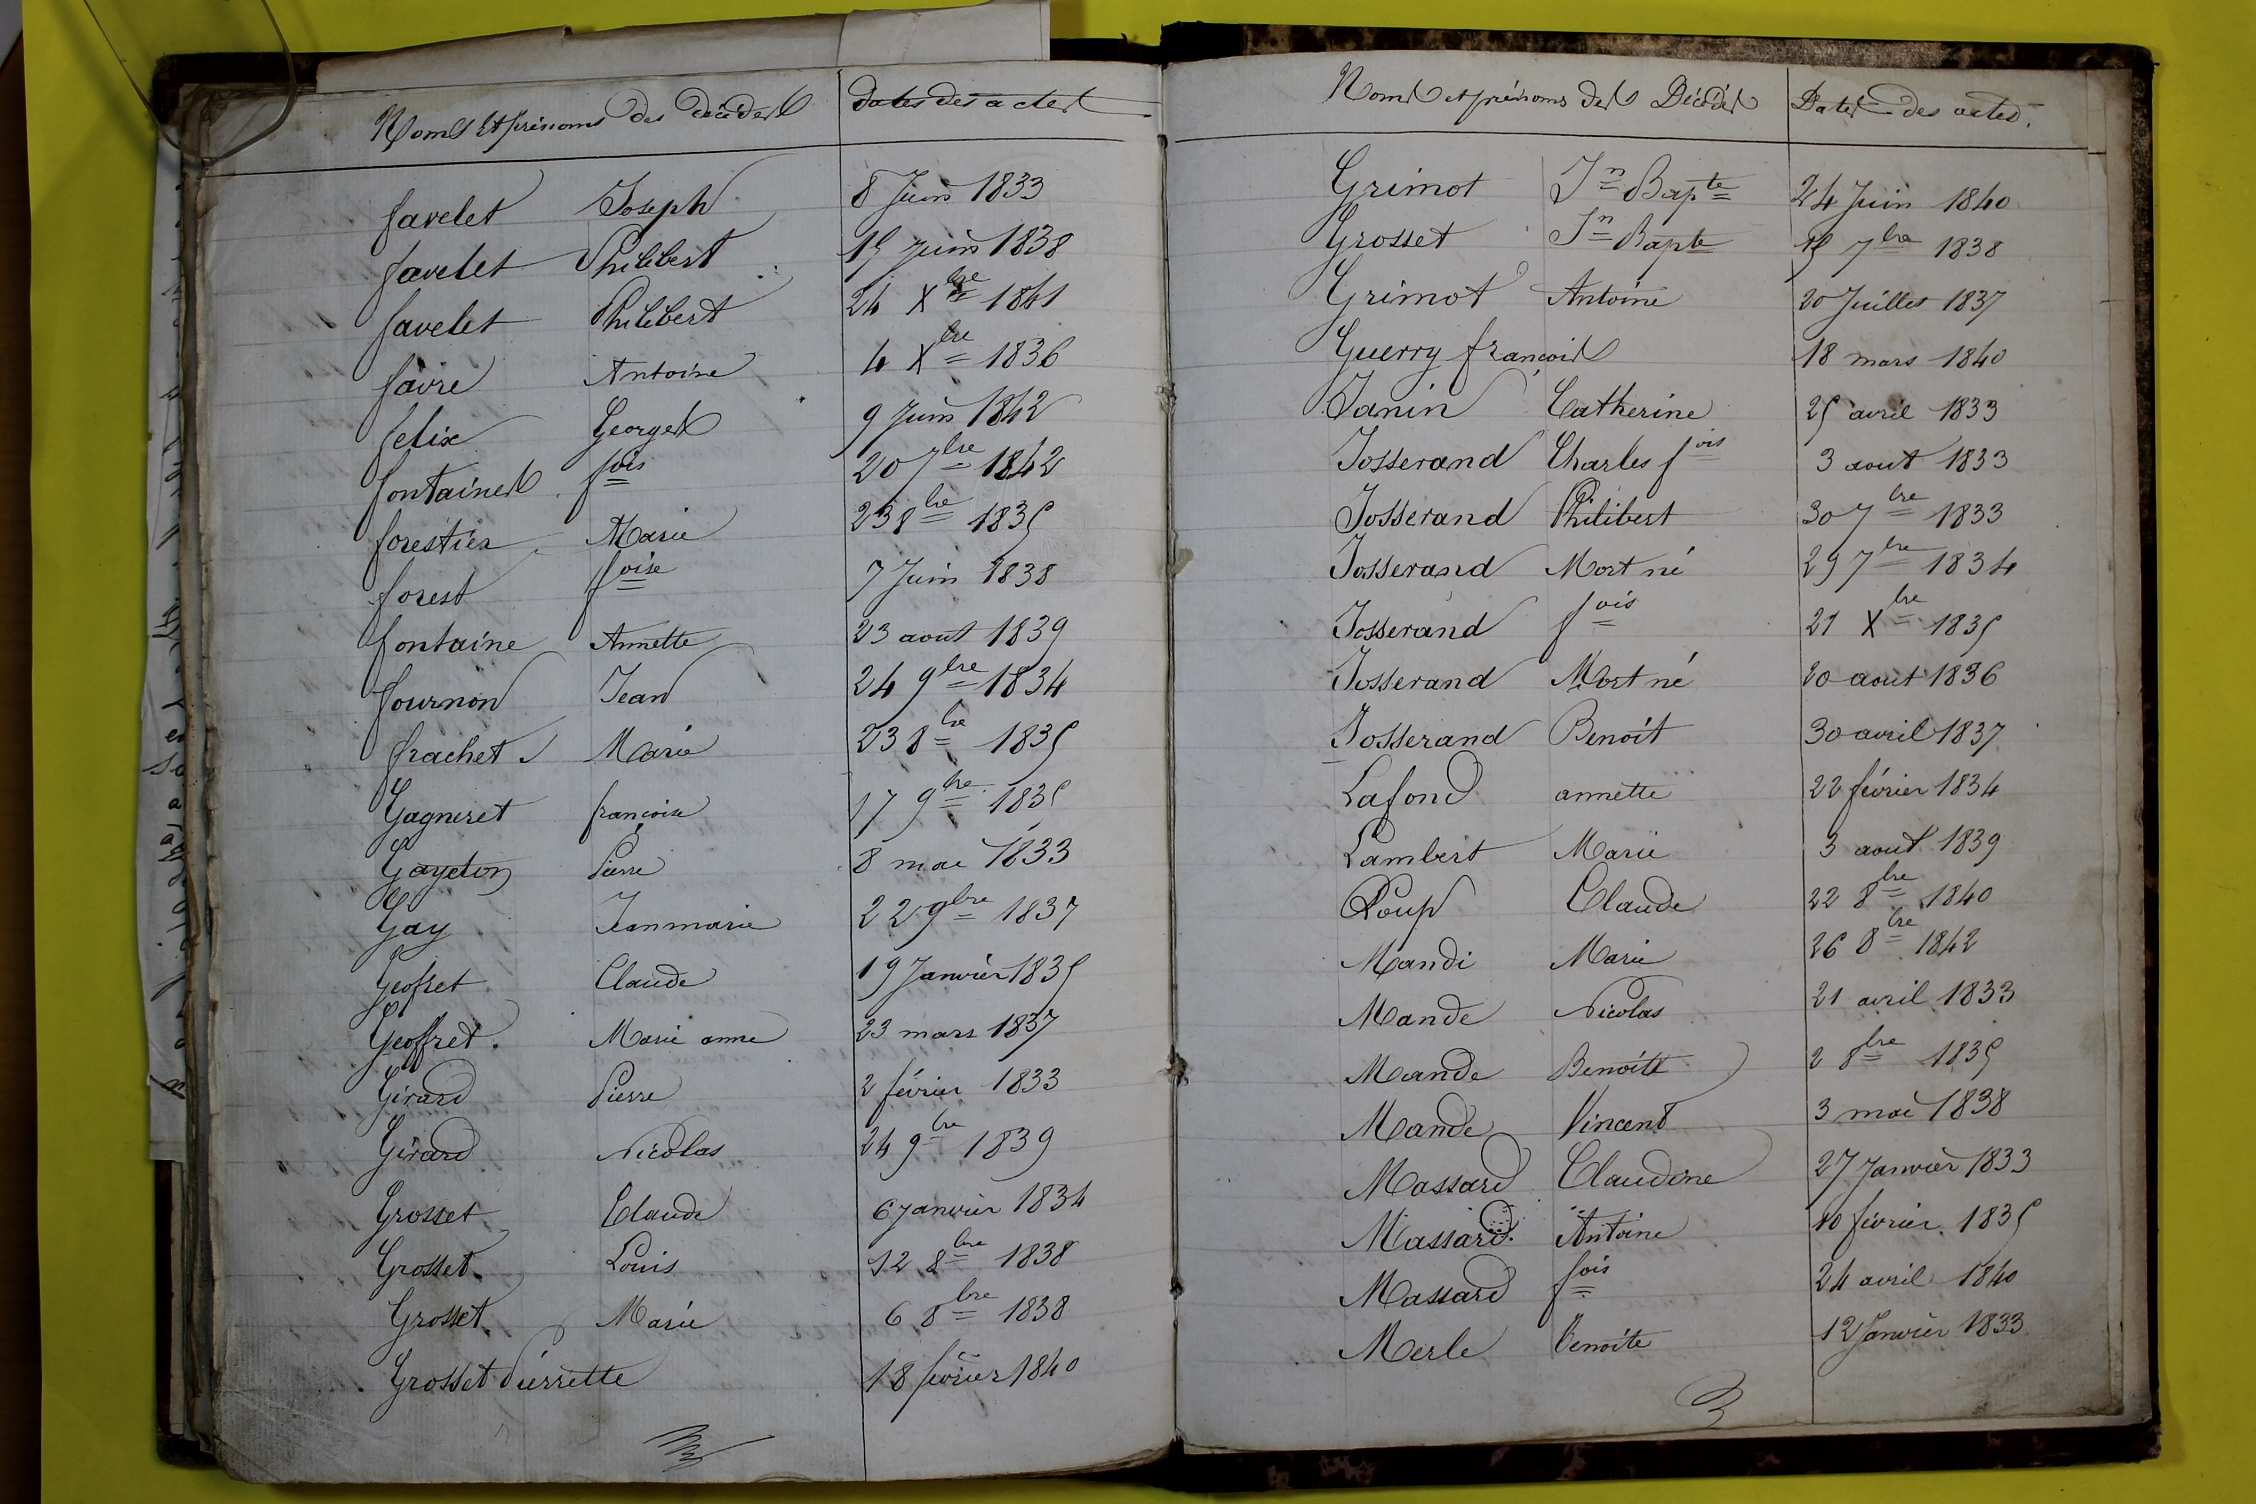 Noms et prénoms des décédés dates des actes
favelet Joseph 8 Juin 1833
favelet Philibert 15 Juin 1838
favelet Philibert 24 Xbre 1841
favre Antoine 4 Xbre 1836
felix Georges 9 Juin 1842
fontaines fois 20 7bre 1842
forestier Marie 23 8bre 1835
forest foise 7 Juin 1838
fontaine Annette 23 aout 1839
fournon Jean 24 9bre 1834
frachet Marie 23 8bre 1835
Gagneret francoise 17 9bre 1835
Gayeton Pierre 8 mai 1833
Gay Jeanmarie 22 9bre 1837
Geofret Claude 19 Janvier 1835
Geoffret. Marie anne 23 mars 1837
Girard Pierre 2 février 1833
Girard Nicolas 24 9bre 1839
Grosset Claude 6 Janvier 1834
Grosset. Louis 12 8bre 1838
Grosset. Marie 6 8bre 1838
Grosset Pierrette 18 février 1840
Noms et prénoms des Décédés Dates des actes.
Grimot Jn Bapte 24 Juin 1840
Grosset Jn Bapte 15 7bre 1838
Grimot Antoine 20 Juillet 1837
Guerry françois 18 mars 1840
Janin Catherine 25 avril 1833
Josserand Charles fois 3 aout 1833
Josserand Philibert 30 7bre 1833
Josserand Mort né 29 7bre 1834
Josserand fois 21 Xbre 1835
Josserand Mort né 20 aout 1836
Josserand Benoit 30 avril 1837
Lafond annette 22 février 1834
Lambert Marie 3 aout 1839
Loup Claude 22 8bre 1840
Mandi Marie 26 8bre 1842
Mande Nicolas 21 avril 1833
Mande Benoite 2 8bre 1835
Mande Vincent 3 mai 1838
Massard Claudine 27 Janvier 1833
Massard. Antoine 10 février 1835
Massard fois 24 avril 1840
Merle Benoite 12 Janvier 1833